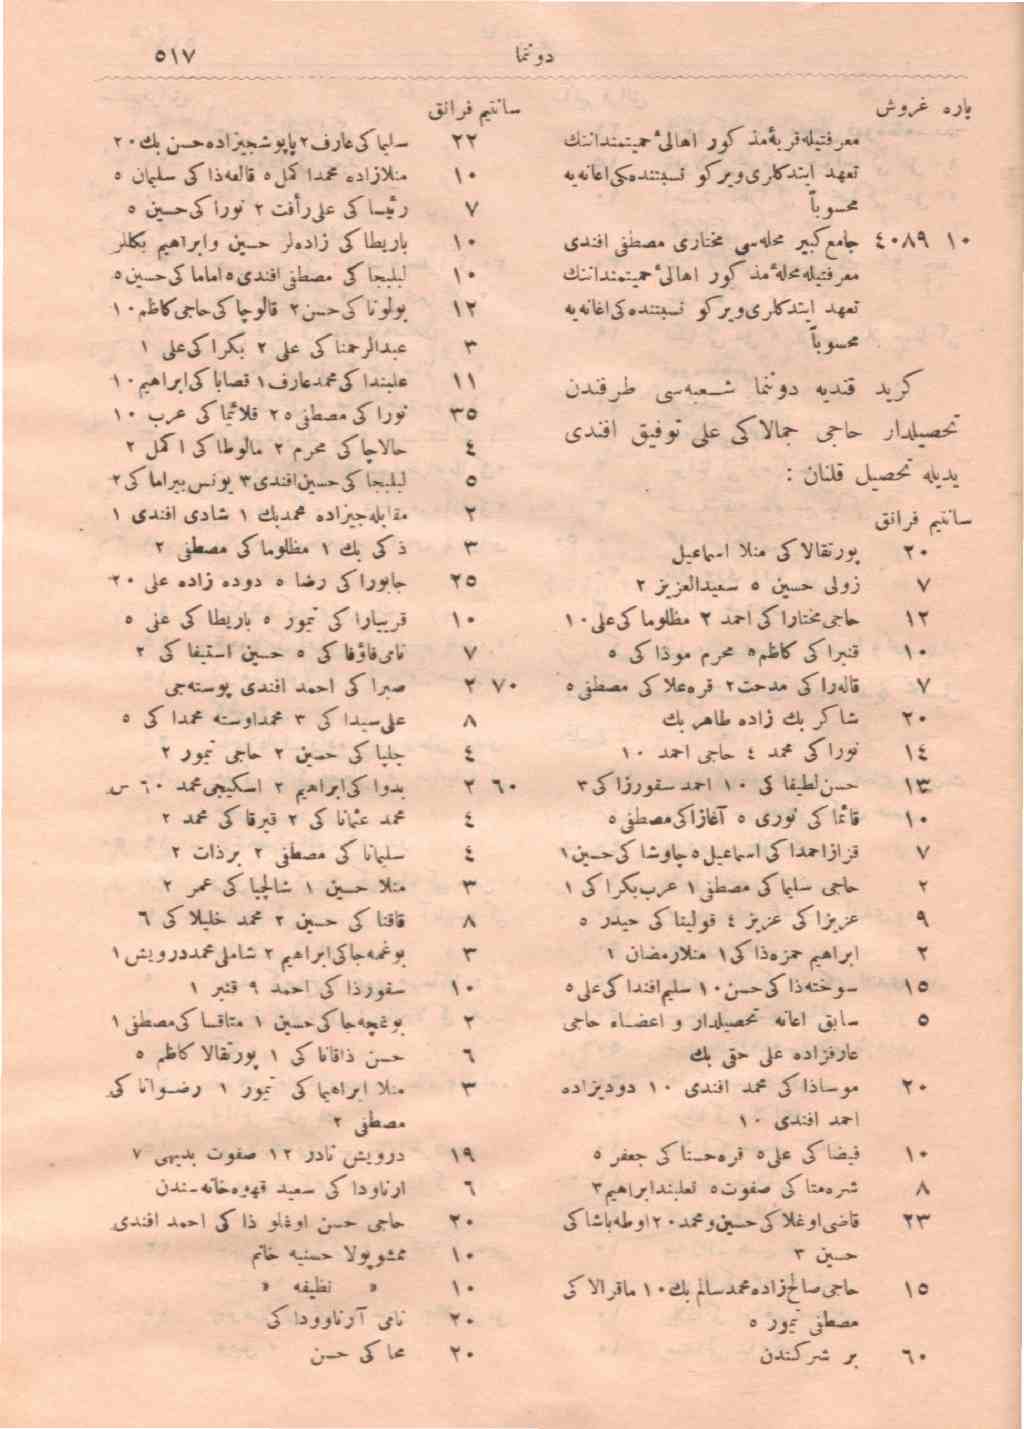 دونمّا ٥١٧
پاره غروش
معرفتيله قريهٔ مذكور اهالیٔ حميتمنداننك
تعهد ايتدكلری ويركو نسبتنده كی اعانه يه
محسوباً
١٠ ٤٠٨٩ جامع كبير محله سی مختاری مصطفی افندی
معرفتيله محلهٔ مذكور اهالیٔ حميتمنداننك
تعهد ايتدكلری ويركو نسبتنده كی اعانه يه
محسوباً
كريد قنديه دونمّا شعبه سی طرفندن
تحصيلدار حاجی جمالاكی علی توفيق افندی
يديله تحصيل قلنان :
سانتيم فرانق
٢٠ پورتقالاكی منلا اسماعيل
٧ زولی حسين ٥ سعيدالعزيز ٢
١٢ حاجی مختاراكی احمد ٢ مظلوماكی علی ١٠
١٠ قنبراكی كاظم ٥ محرم موذاكی ٥
٧ قاله راكی مدحت ٢ قره علاكی مصطفی ٥
٢٠ شاكر بك زاده طاهر بك
١٤ نوراكی محمد ٤ حاجی احمد ١٠
١٣ حسن لطيفاكی ١٠ احمد سفورزاكی ٣
١٠ قائماكی نوری ٥ آغازاكی مصطفی ٥
٧ قزازاحمداكی اسماعيل ٥ چاوشاكی حسين ١
٢ حاجی سليماكی مصطفی ١ عرب بكراكی ١
٩ عزيزاكی عزيز ٤ قولينماكی حيدر ٥
٢ ابراهيم حمزه ذاكی ١ منلارمضان ١
١٥ سوخته ذاكی حسن ١٠ سليم افنداكی علی ٥
٥ سابق اعانه تحصيلدار و اعضاء حاجی
عارفزاده علی حقی بك
٢٠ موساذاكی محمد افندی ١٠ دوديزاده
احمد افندی ١٠
١٠ فيضاكی علی ٥ قره حسناكی جعفر ٥
٨ شره متاكی صفوت ٥ نعلبندابراهيم ٣
٢٣ قاضی اوغلاكی حسين ومحمد ٢٠ اوطه باشاكی
حسين ٣
١٥ حاجی صالح زاده محمدسالم بك ١٠ ماقرالاكی
مصطفی تيمور ٥
٦٠ بر شركتدن
سانتيم فرانق
٢٢ سليماكی عارف ٢ پاپوشجيزاده حسن بك ٢٠
١٠ منلازاده محمدا كمل ٥ قالعه ذاكی سليمان ٥
٧ رئيساكی علی رأفت ٢ نوراكی حسين ٥
١٠ باريطاكی زاده لر حسين وابراهيم بكلر
١٠ لبلبجاكی مصطفی افندی ٥ اماماكی حسين ٥
١٢ بولوناكی حسن ٢ قالوچاكی حاجی كاظم ١٠
٣ عبدالرحمناكی علی ٢ بكراكی علی ١
١١ علبنداكی محمدعارف ١ قصاباكی ابراهيم ١٠
٣٥ نوراكی مصطفی ٢٥ قلائيماكی عرب ١٠
٤ حالاچاكی محرم ٢ مالوطاكی اكمل ٢
٥ لبلبجاكی حسين افندی ٣ يونس بيراماكی ٢
٢ مقابله جيزاده محمدبك ١ شادی افندی ١
٣ ذكی بك ١ مظلوماكی مصطفی ٢
٢٥ جابوراكی رضا ٥ دوده زاده علی ٢٠
١٠ قريپاراكی تيمور ٥ باريطاكی عنی ٥
٧ نامی فاؤفاكی ٥ حسين استيفاكی ٢
٧٠ ٢ صبراكی احمد افندی پوسته جی
٨ علی سيداكی ٣ محمداوسته محمداكی ٥
٤ جلياكی حسين ٢ حاجی تيمور ٢
٦٠ ٢ بدواكی ابراهيم ٢ اسكيجی محمد ٦٠ س
٤ محمد عثماناكی ٢ قيرقاكی محمد ٢
٤ سليماناكی مصطفی ٢ برذات ٢
٣ منلا حسين ١ شالجياكی عمر ٢
٨ قاقناكی حسين ٢ محمد خليلاكی ٦
٣ بوغمه جاكی ابراهيم ٢ شاملی محمددرويش ١
١٠ سفورذاكی احمد ٩ قنبر ١
٢ بوغچه جاكی حسين ١ متاقساكی مصطفی ١
٦ حسن ذاقاناكی ١ پورتقالا كاظم ٥
٣ منلا ابراهيماكی تيمور ١ رضواناكی
مصطفی ٢
١٩ درويش نادر ١٢ صفوت بديهی ٧
٦ ارناوداكی سعيد قهوه خانه سندن
٢٠ حاجی حسن اوغلو ذاكی احمد افندی
١٠ ممشوپولا حسنيه خانم
١٠ « نظيفه «
٢٠ نامی آرناووداكی
٢٠ محاكی حسن